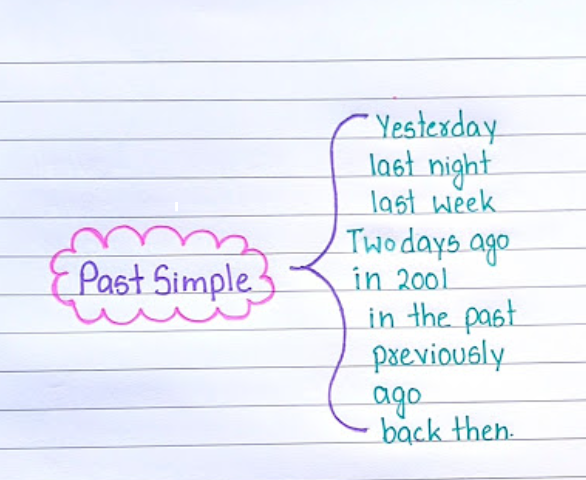 Past Simple
Yesterday
last night
last week
Two days ago
in 2001
in the past
previously
ago
back then.